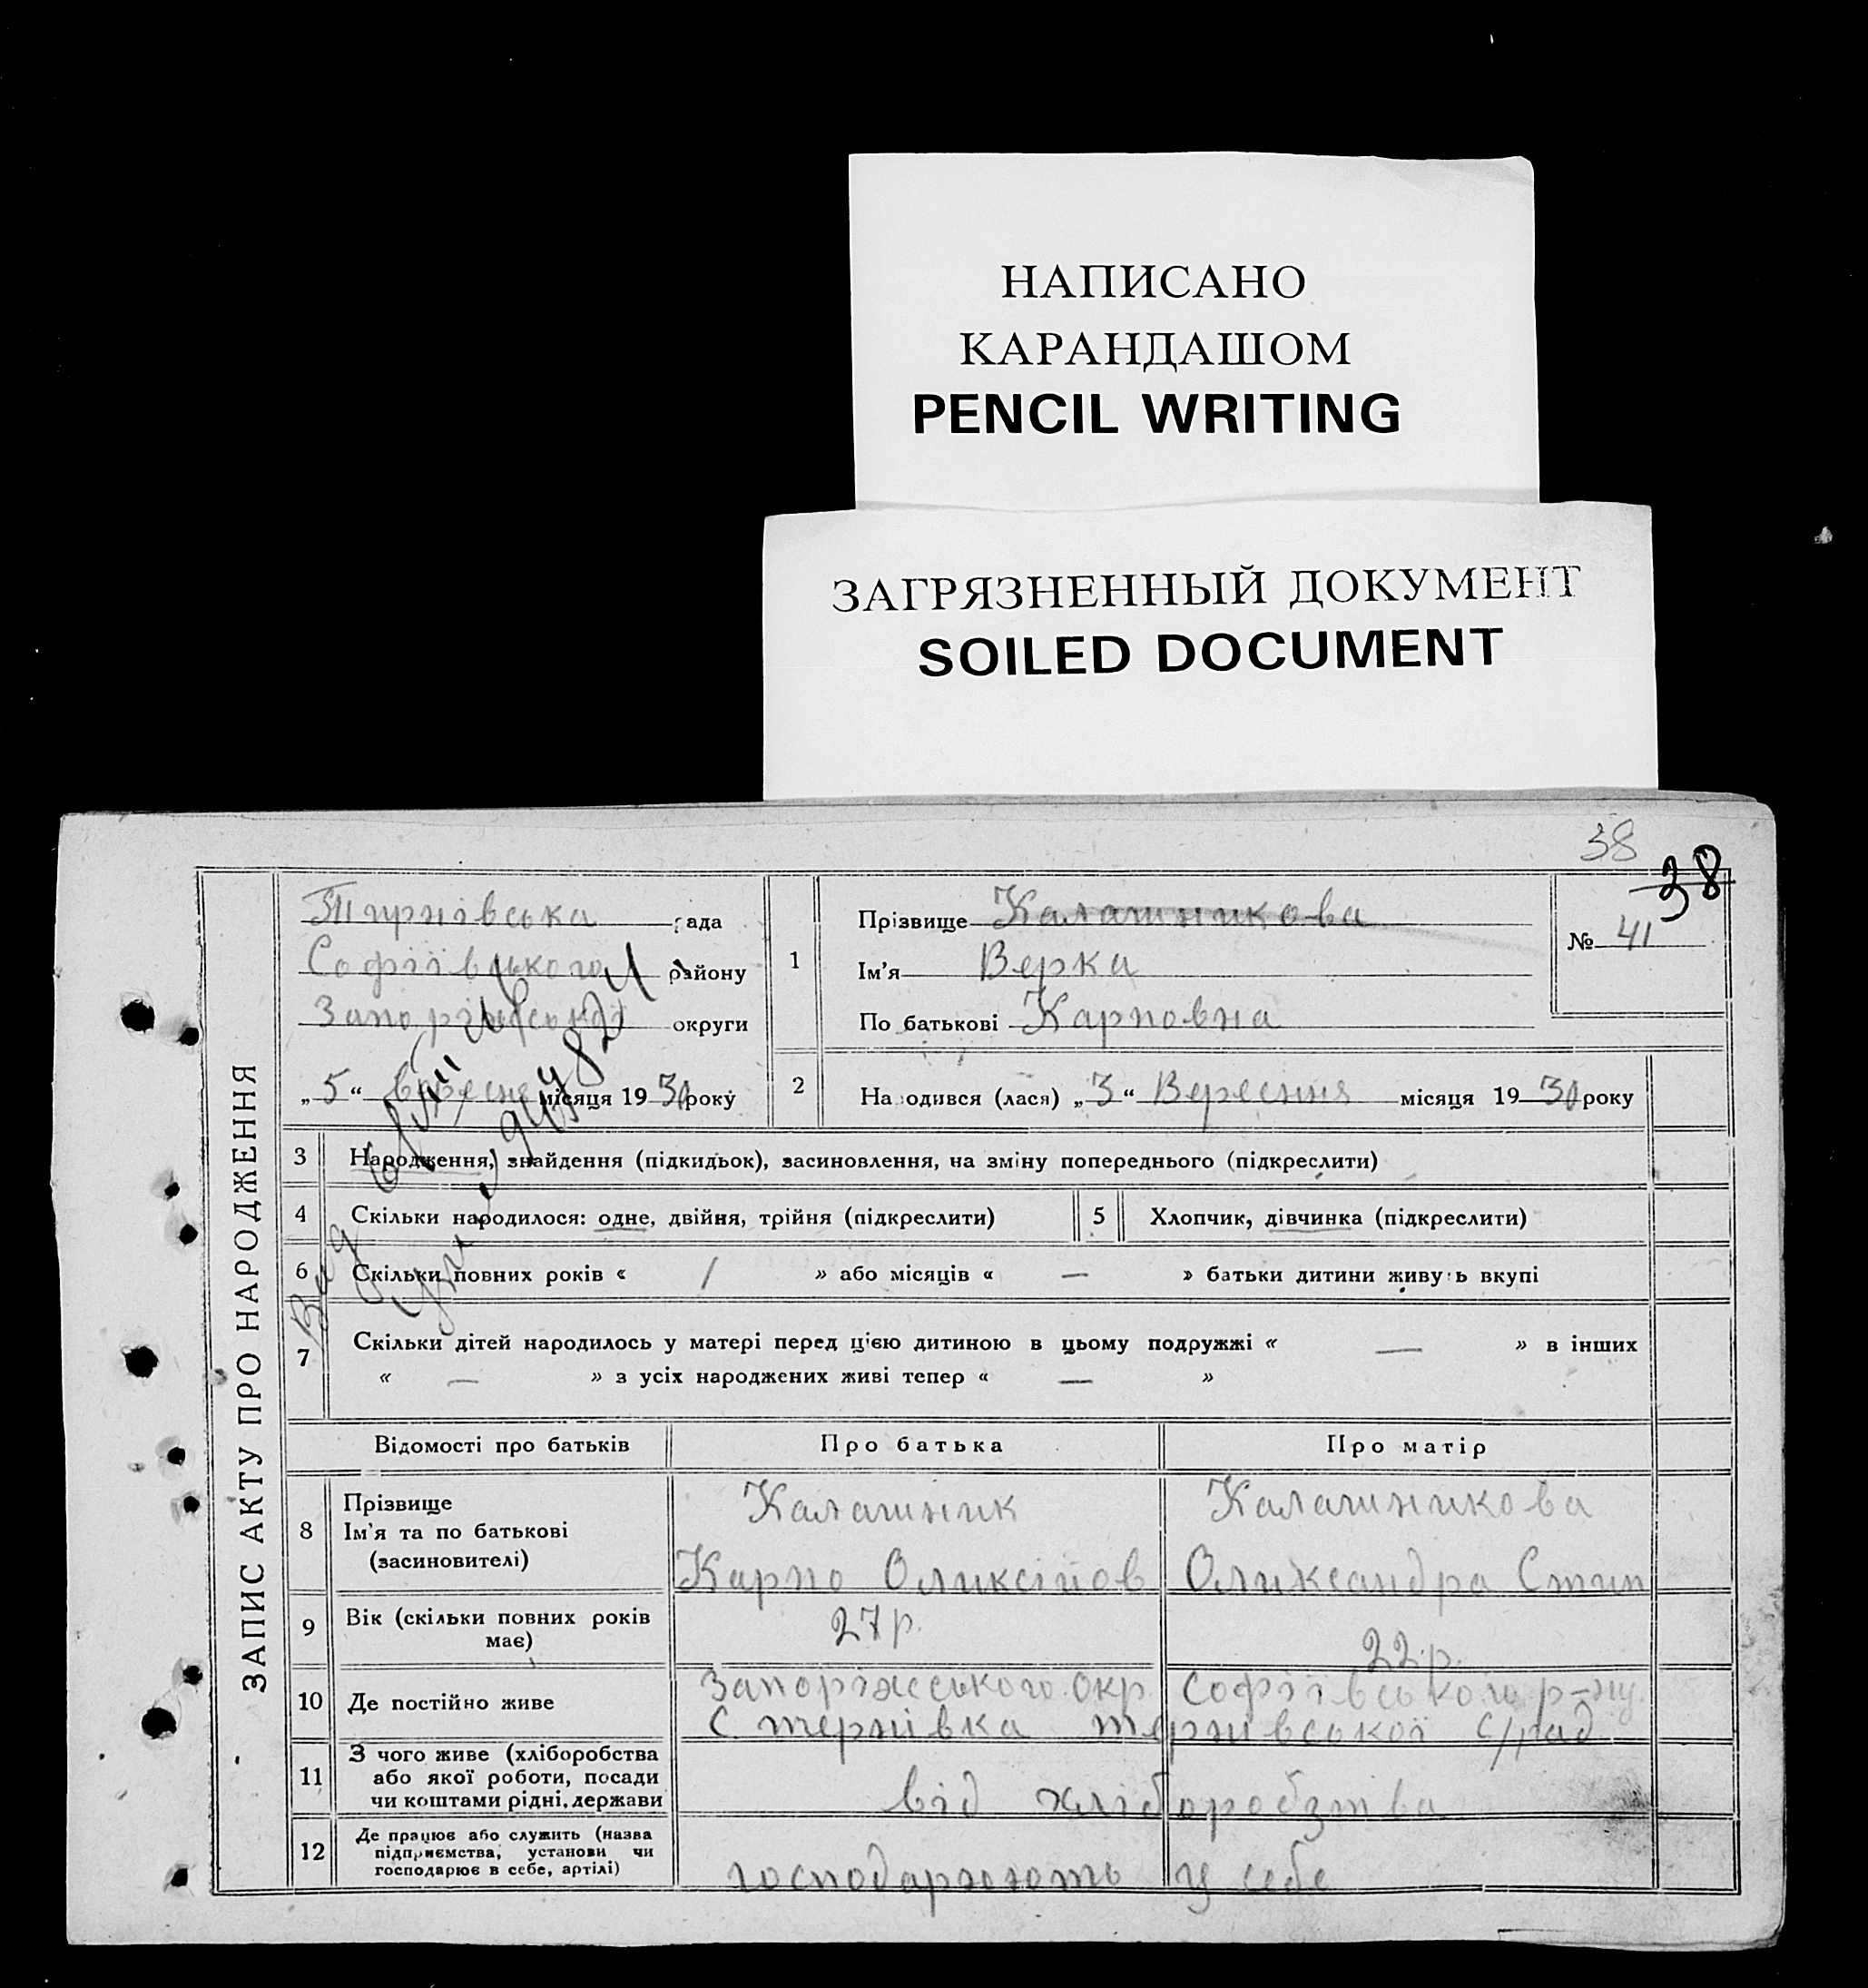 НАПИСАНО
КАРАНДАШОМ
PENCIL WRITING
ЗАГРЯЗНЕННЫЙ ДОКУМЕНТ
SOILED DOCUMENT
38
38
ЗАПИС АКТУ ПРО НАРОДЖЕННЯ
рада
Софіївського району
округи
„5“ вересня місяця 1930 року
1
Прізвище Калашникова
Ім'я Верка
По батькові Карповна
№ 41
2 Народився (лася) „3“ Вересння місяця 1930 року
3 Народження, знайдення (підкидьок), засиновлення, на зміну попереднього (підкреслити)
4 Скільки народилося: одне, двійня, трійня (підкреслити) 5 Хлопчик, дівчинка (підкреслити)
6 Скільки повних років « / » або місяців « — » батьки дитини живуть вкупі
7 Скільки дітей народилось у матері перед цією дитиною в цьому подружжі « — » в інших
« — » з усіх народжених живі тепер « — »
Відомості про батьків Про батька Про матір
8 Прізвище
Ім'я та по батькові
(засиновителі)
Калашник
Карпо Оликсійов
Калашникова
Олижсандра Стип
9 Вік (скільки повних років
має)
27 р.
22 р.
10 Де постійно живе
Запоріжського Окр. Софіївського р-ну
С Тернівка тернівської с/рад
11 З чого живе (хліборобства
або якої роботи, посади
чи коштами рідні, держави
від хліборобзтва
12 Де працює або служить (назва
підприємства, установи чи
господарює в себе, артілі)
господарюють у себе